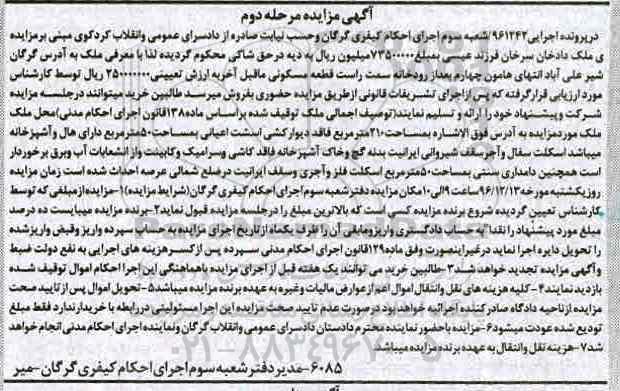 آگهی مزایده مرحله دوم
درپرونده اجرایی۹۶۱۲۴۲ شعبه سوم اجرای احکام کیفری گرگان وحسب نیابت صادره از دادسرای عمومی وانقلاب کردکوی مبنی برمزایده
ی ملک دادخان سرخان فرزند عیسی بمبلغ۷۳۵۰۰۰۰۰۰میلیون ریال به دیه درحق شاکی محکوم گردیده لذا با معرفی ملک به آدرس گرگان
شیر علی آباد انتهای هامون چهارم بعداز رودخانه سمت راست قطعه مسکونی ماقبل آخربه ارزش تعیینی۲۵۰۰۰۰۰۰۰ ریال توسط کارشناس
مورد ارزیابی قرارگرفته که پس ازاجرای تشریفات قانونی ازطریق مزایده حضوری بفروش میرسد طالبین خرید میتوانند درجلسه مزایده
شرکت وپیشنهاد خود را ارائه و تسلیم نمایند(توصیف اجمالی ملک توقیف شده براساس ماده۱۳۸قانون اجرای احکام مدنی)محل ملک
ملک موردمزایده به آدرس فوق الاشاره بمساحت۲۱۰مترمربع فاقد دیوارکشی استدشت اعیانی بمساحت۵۰مترمربع دارای هال وآشپزخانه
میباشد اسکلت سفال وآجرسقف شیروانی ایرانیت بدنه گچ وخاک آشپزخانه فاقد کاشی وسرامیک وکابینت واز انشعابات آب وبرق برخوردار
است همچنین دامداری بسنتی بمساحت۵۰مترمربع اسکلت فلز وآجری وسقف ایرانیت درضلع شمالی عرصه احداث شده است زمان مزایده
روزیکشنبه مورخه ۹۶/۱۲/۱۳ساعت ۹الی۱۰مکان مزایده دفترشعبه سوم اجرای احکام کیفری گرگان(شرایط مزایده)۱-مزایده ازمبلغی که توسط
کارشناس تعیین گردیده شروع برنده مزایده کسی است که بالاترین مبلغ را درجلسه مزایده قبول نماید۲-برنده مزایده میبایست ده درصد
مبلغ مورد پیشنهاد را نقدا به حساب دادگستری واریزومابقی آن را ظرف یکماه از تاریخ اجرای مزایده به حساب سپرده واریز وقبض واریزشده
را تحویل دایره اجرا نماید درغیراینصورت وفق ماده۱۲۹قانون اجرای احکام مدنی سپرده پس ازکسر هزینه های اجرایی به نفع دولت ضبط
وآگهی مزایده تجدید خواهد شد۳-طالبین خرید می توانند یک هفته قبل از اجرای مزایده باهماهنگی این اجرا احکام اموال توقیف شده
بازدید نمایند۴- کلیه هزینه های نقل وانتقال اموال اعم ازعوارض مالیات وغیره به عهده برنده مزایده میباشد۵-تحویل اموال پس از تایید صحت
مزایده ازناحیه دادگاه صادر کننده اجرائیه خواهد بود درصورت عدم تایید صحت مزایده این اجرا مسئولیتی دررابطه با خریدارندارد فقط مبلغ
تودیع شده عودت میشود۶-مزایده باحضور نماینده محترم دادستان دادسرای عمومی وانقلاب گرگان ونماینده اجرای احکام مدنی انجام خواهد
شد۷-هزینه نقل وانتقال به عهده برنده مزایده میباشد
۶۰۸۵-مدیر دفتر شعبه سوم اجرای احکام کیفری گرگان-میر
۰۲۱-۸۸۳۴۹۶۷۰